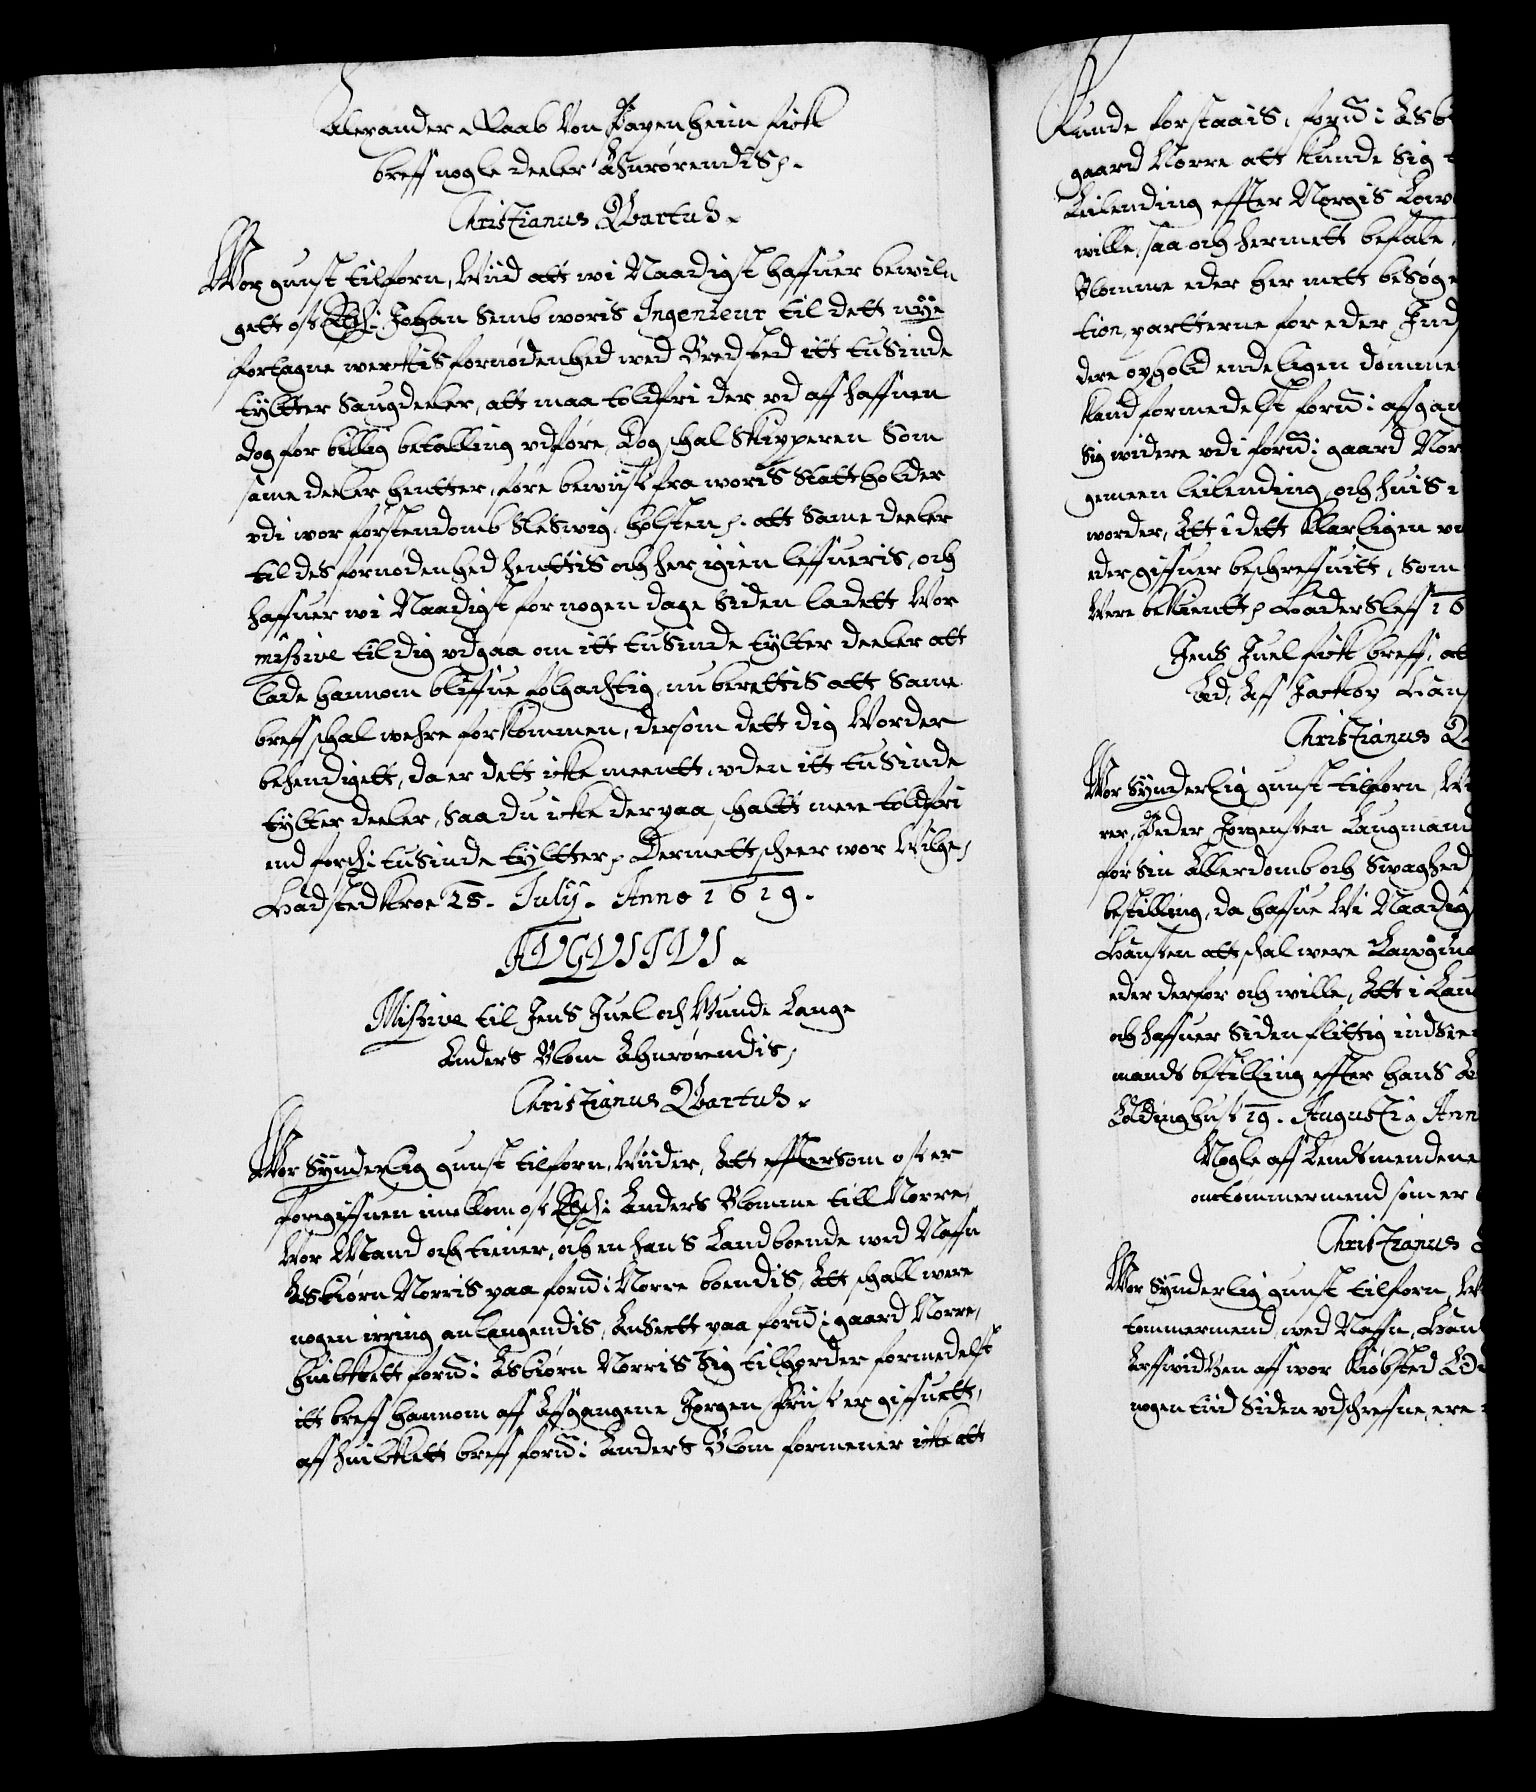 Alexander Raab Von Papenheim fick
breff nogle deeler Anrørendis.
Christianus Qvartus.
Wor gunst tilforn, Wiid att wi Naadigst haffuer bewil-
gett oss Elsch: Johan Semb woris Ingenieur til dett nye
fortagne werckis fornødenhed wed Bredsted itt tusinde
tyltter Saugdeeler, att maa toldfri der ud aff haffnen
dog for billig betalling udføre, Dog schal Skipperen Som
same deeler hentter, føre bewiis fra woris Statt holder
udi wor førstendomb Sleswig, holsten, att Same deeler
til des fornødenhed henttis och her igien leffueris, och
haffuer wi Naadigst for nogen dage Siden ladett Wor
missive til dig udgaa om itt tusinde tylter deeler att
lade hannom bliffue følgachtig, nu berettis att Same
breff schal wehre forkommen, dersom dett dig Worder
behendigett, da er dett icke meentt, uden itt tusinde
tylter deeler, Saa du icke der paa statt mere toldfri
end forsch: tusinde tyltter, Dermett scheer wor Wilge,
Hadsted kroe 28. July. Anno 1619.
AUGUSTUS.
Missive til Jens Juel och Gunde Lange
Anders Blom Ahnrørendis,
Christianus Qvartus.
Wor Synderlig gunst tilforn, Wiider, Att efftersom oss er
foregiffuen imellom oss Elsch: Anders Blomme till Norre,
Wor Mand och tiener, och en hans Landboende wed Naffn
Asbiørn Norris paa fornd: Norre boendis, Att schall were
nogen irring anlangendis, Ansett paa fornd: gaard Norre,
huilckett fornd: Asbiørn Norris Sig tilhorder formedelst
itt breff hannom aff Affgangene Jørgen Friis er giffuett,
aff huilckett breff fornd: Anders Blom formener icke att
Kunde forstaais, fornd: Asb
gaard Norre att kunde Sig
Leilending effter Norgis Low
wille, saa och hermett befale,
Blomme eder her mett besøge
tion, partterne for eder Ind
dere ophold endeligen domme
kand formedelst fornd: afgan
Sig widere udi fornd: gaard Nor
gemeen leilending, och huis
worder, Att i dett klarligen
eder giffuer beschreffuitt, Som
Were bekientt, Haderssleff 16
Jens Juel fick breff, at
Aff Jackop Hans
Christianus Q
Wor Synderlig gunst tilforn, W
rer, Peder Jørgensen Laugmand
for Sin Allerdomb och Swaghed
bestilling, da hafue Wi Naadig
Hansen att schal were Laugm
eder derfor och wille, Att i Lau
och haffuer Siden flittig indsie
mands bestilling effter hans
Koldinghus 19. Augusti Ann
Nogle aff Lendsmendene
om tømmermend som er
Christianus
Wor Synderlig gunst tilforn, W
tømmermend, wed Naffn, Hans
Arffwidsen aff wor Kiøbsted
nogen tiid Siden udschrefne, ere